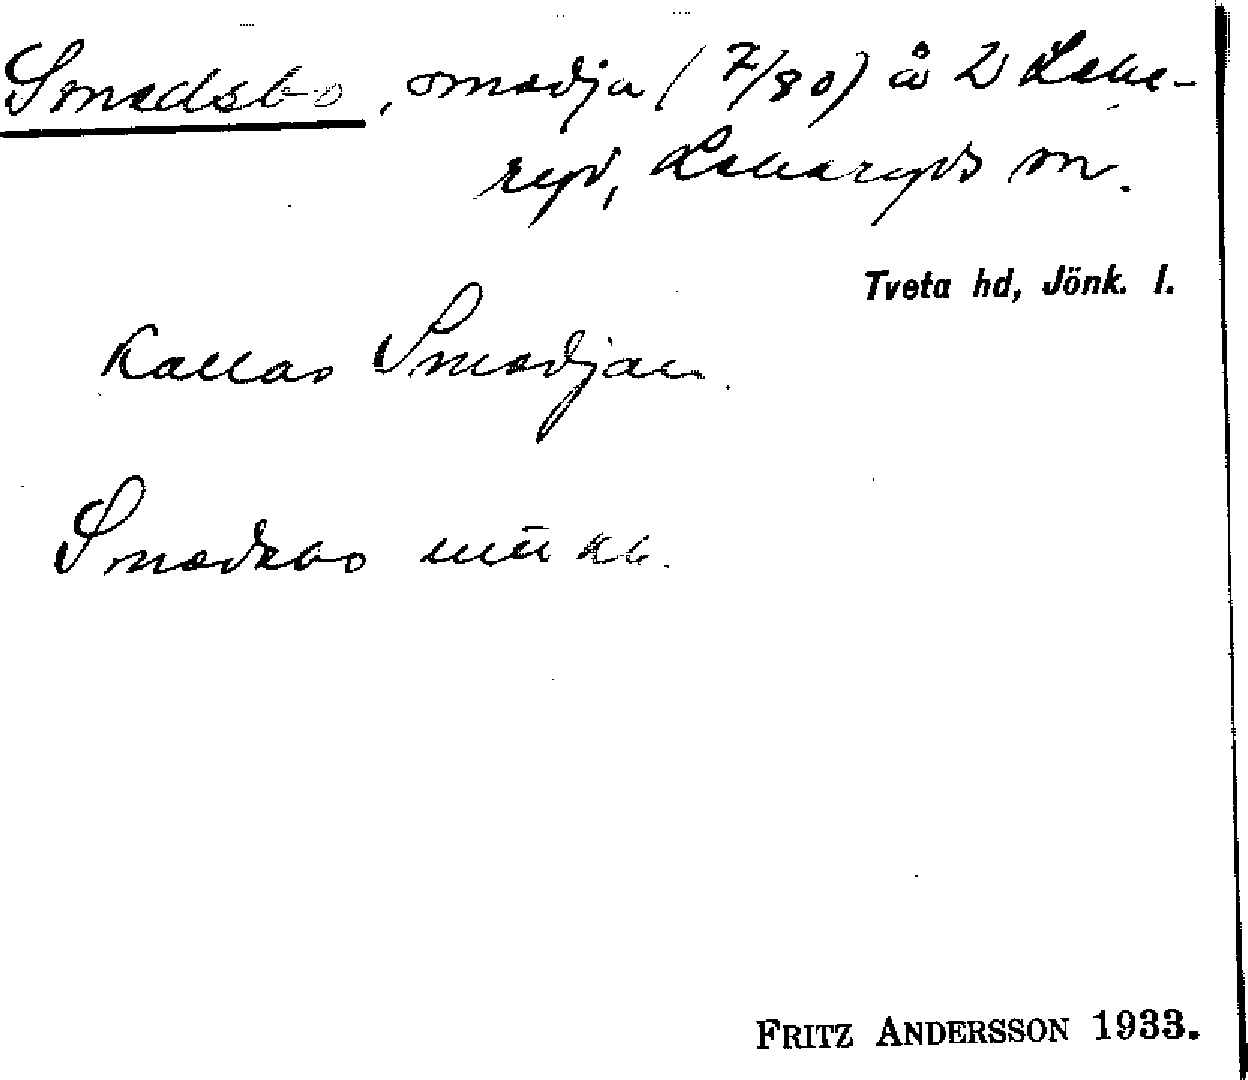 Smedsbo, smedja (7/80) å 2 Leke-
ryd, Lekeryds sn.
Tveta hd, Jönk. l.
Kallas Smedjan.
Smedsbo
FRITZ ANDERSSON 1933.